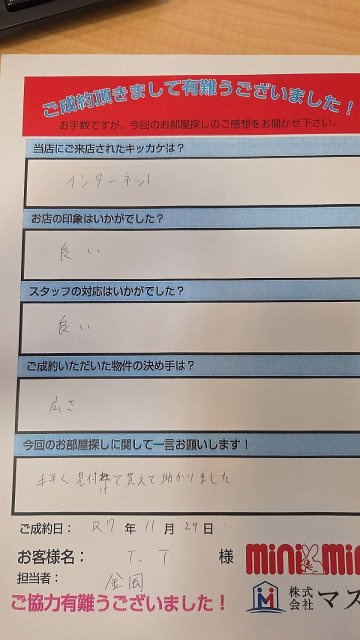 ご成約頂きまして有難うございました！
お手数ですが、今回のお部屋探しのご感想をお聞かせ下さい。
当店にご来店されたキッカケは？
インターネット
お店の印象はいかがでした？
良い
スタッフの対応はいかがでした？
良い
ご成約いただいた物件の決め手は？
広さ
今回のお部屋探しに関して一言お願いします！
手早く見付けて貰えて助かりました
ご成約日： R7 年 11 月 29 日
お客様名： T. T 様
mini mi
担当者： 金岡
株式会社 マス
ご協力有難うございました！